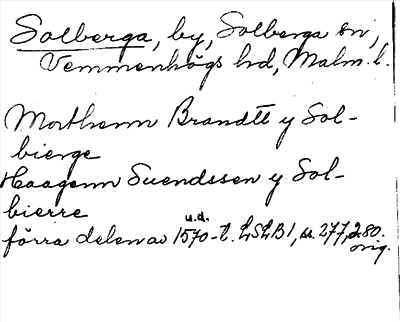 Solberga, by, Solberga sn,
Vemmenhögs hd, Malm. l.
Morthenn Brandtt y Sol-
bierge
Haagenn Suendssen y Sol-
bierre
u.d.
förra delen av 1570-t. LSLB 1, s. 277, 280.
orig.